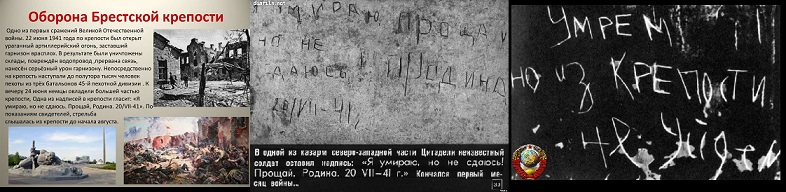 Оборона Брестской крепости
Одно из первых сражений Великой Отечественной
войны. 22 июня 1941 года по крепости был открыт
ураганный артиллерийский огонь, заставший
гарнизон врасплох. В результате были уничтожены
склады, повреждён водопровод, прервана связь,
нанесён серьёзный урон гарнизону. Непосредственно
на крепость наступали до полутора тысяч человек
пехоты из трёх батальонов 45-й пехотной дивизии. К
вечеру 24 июня немцы овладели большей частью
крепости. Одна из надписей в крепости гласит: «Я
умираю, но не сдаюсь. Прощай, Родина. 20/VII-41». По
показаниям свидетелей, стрельба
слышалась из крепости до начала августа.
умираю
Прощай
но не
даюсь
Родина
20/VII-41
В одной из казарм северо-западной части Цитадели неизвестный
солдат оставил надпись: «Я умираю, но не сдаюсь!
Прощай, Родина. 20 VII–41 г.» Кончался первый ме-
сяц войны...
УМРЕМ
НО ИЗ КРЕПОСТИ
НЕ УЙДЕМ